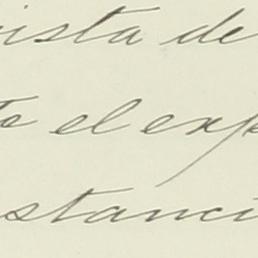 ista de
te el exp
stanci